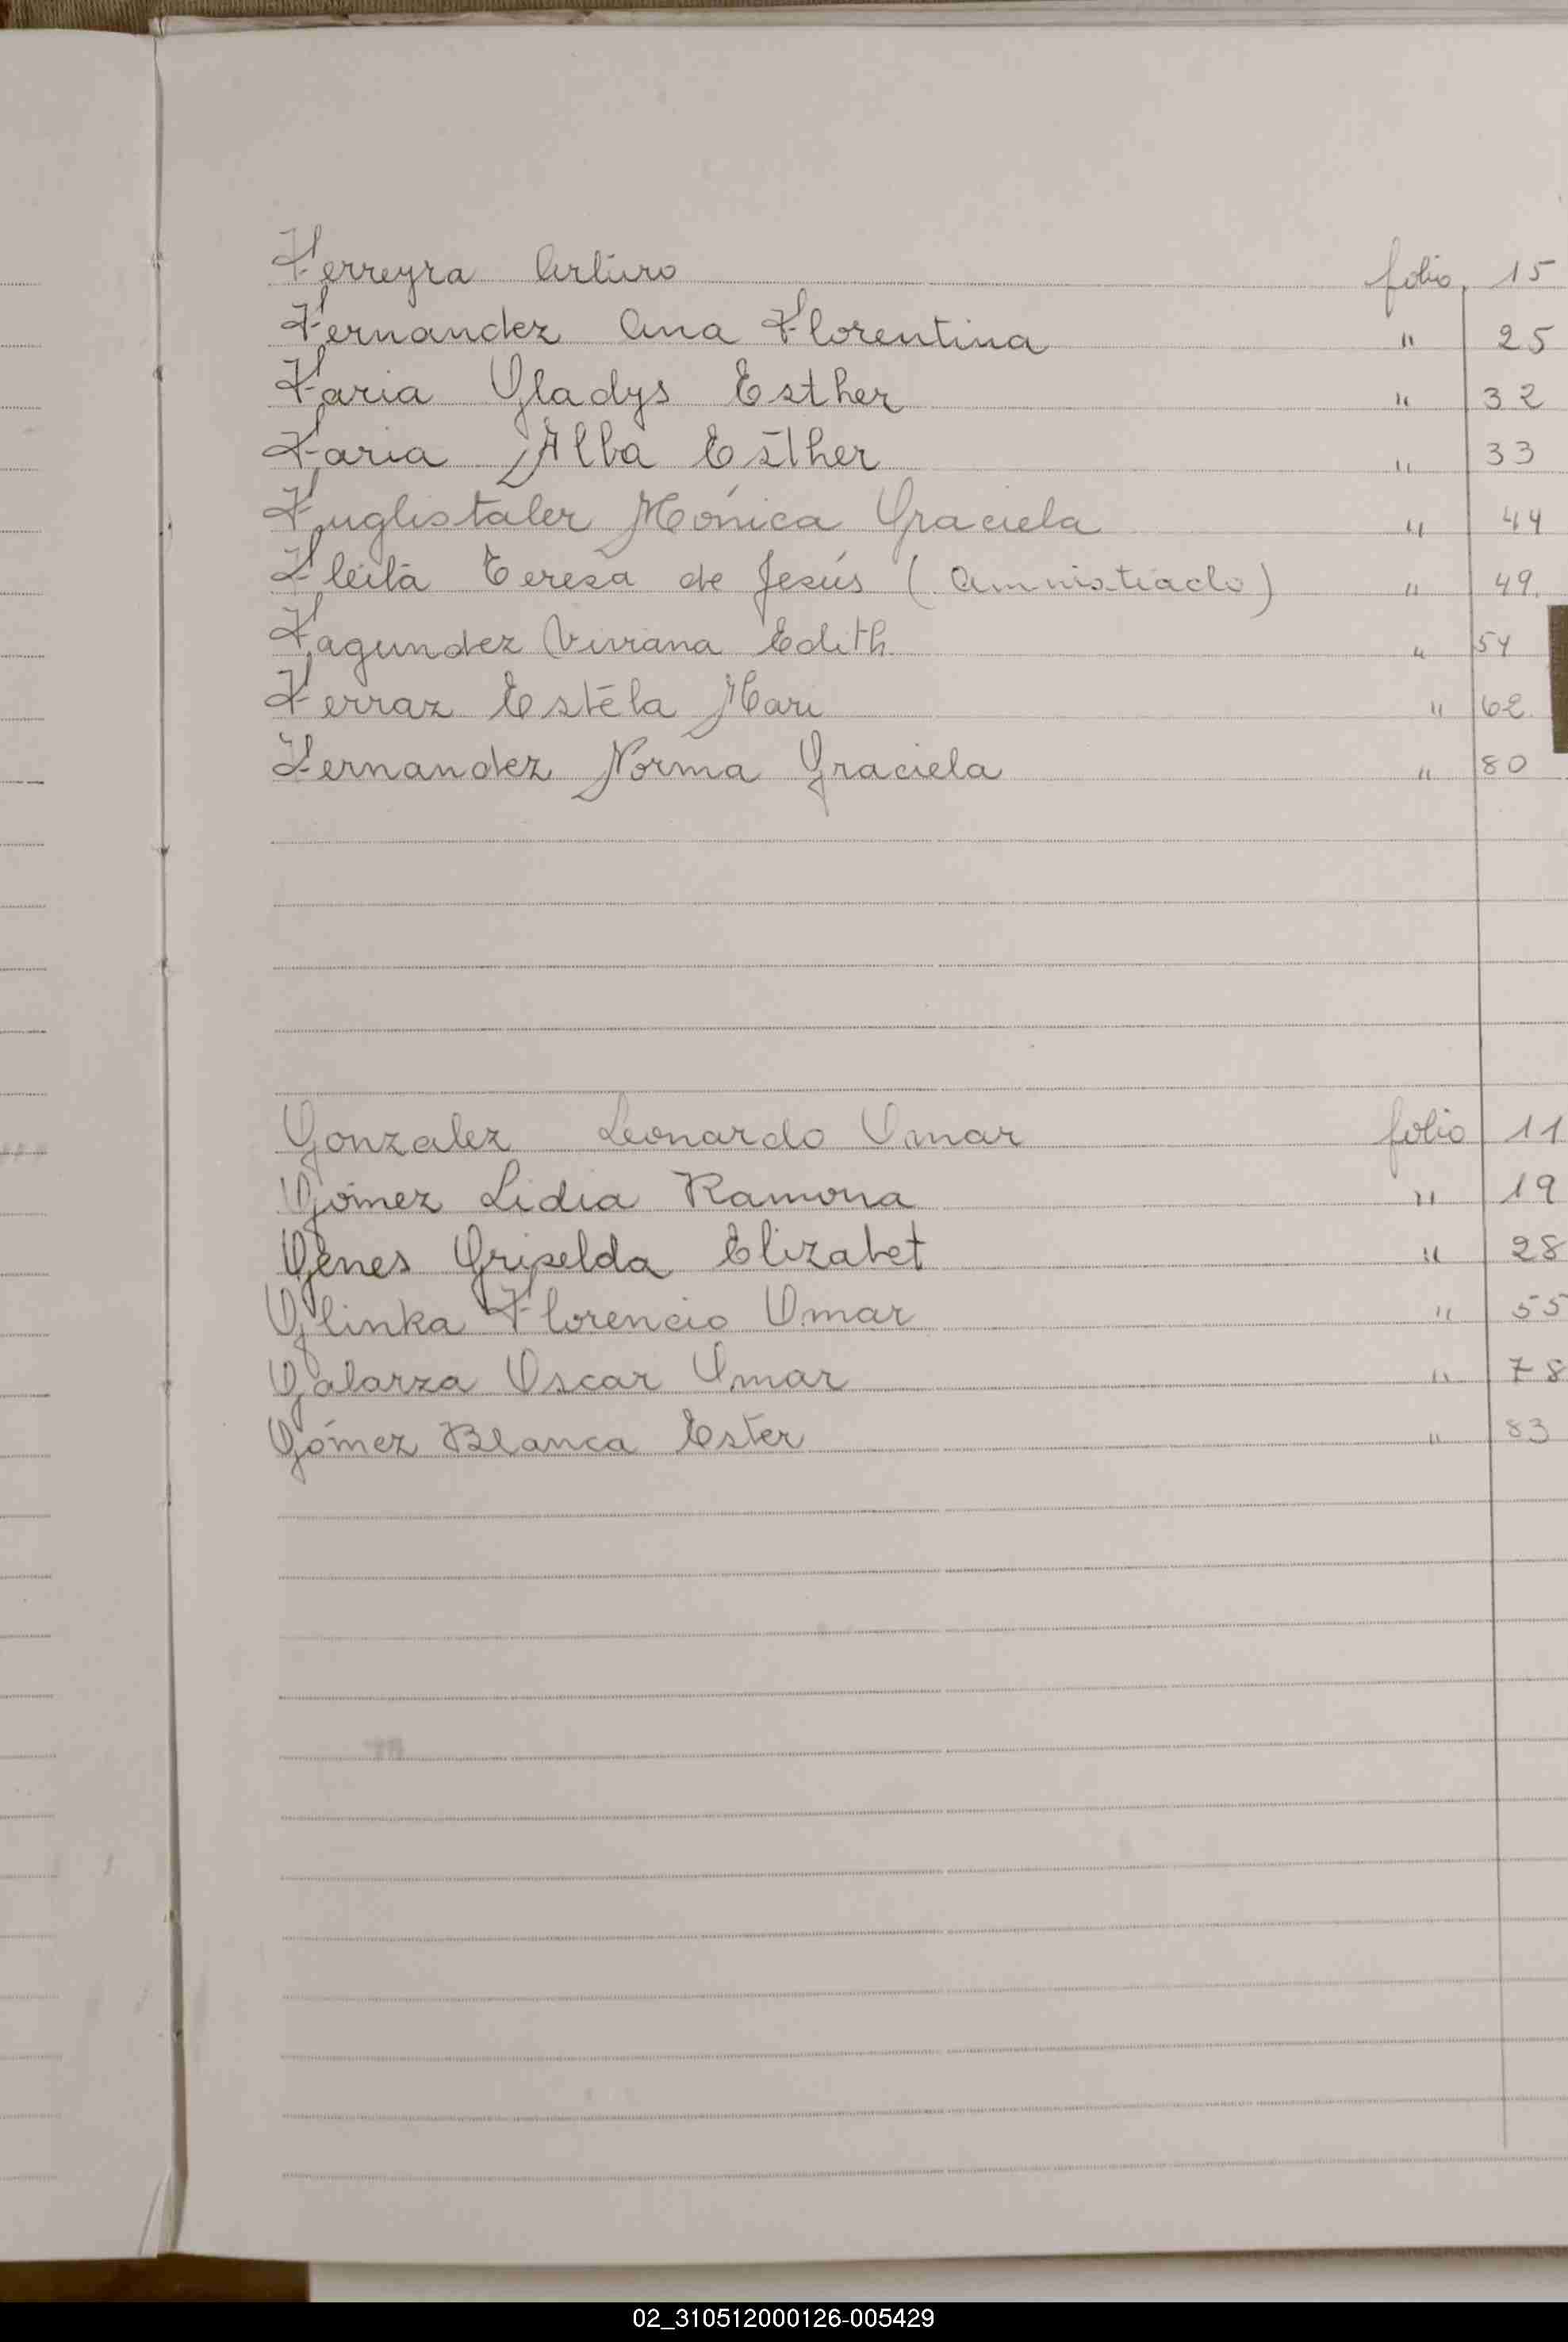 Ferreyra Arturo folio 15
Fernandez Ana Florentina " 25
Faria Gladys Esther " 32
Faria Alba Esther " 33
Fuglistaler Mónica Graciela " 44
Fleita Teresa de Jesús (Amnistiado) " 49.
Fagundez Viviana Edith " 54
Ferraz Estela Mari " 62
Fernandez Norma Graciela " 80
Gonzalez Leonardo Omar folio 11
Gómez Lidia Ramona " 19
Genes Griselda Elizabet " 28
Glinka Florencio Omar " 55
Galarza Oscar Omar " 78
Gómez Blanca Ester " 83
02_310512000126-005429